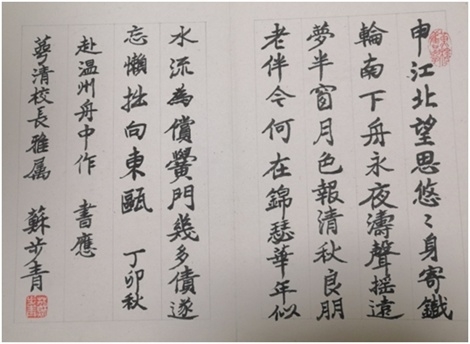 申江北望思悠々身寄鐵
輪南下舟永夜濤聲搖遠
夢半窗月色報清秋良朋
老伴今何在錦瑟華年似
水流為償黌門幾多債遂
忘懶拙向東甌 丁卯秋
赴温州舟中作 書應
蕚清校長雅属 蘇步青